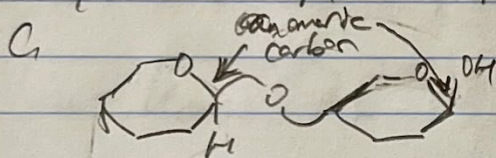 anomeric
carbon
C
O
O
O
OH
H